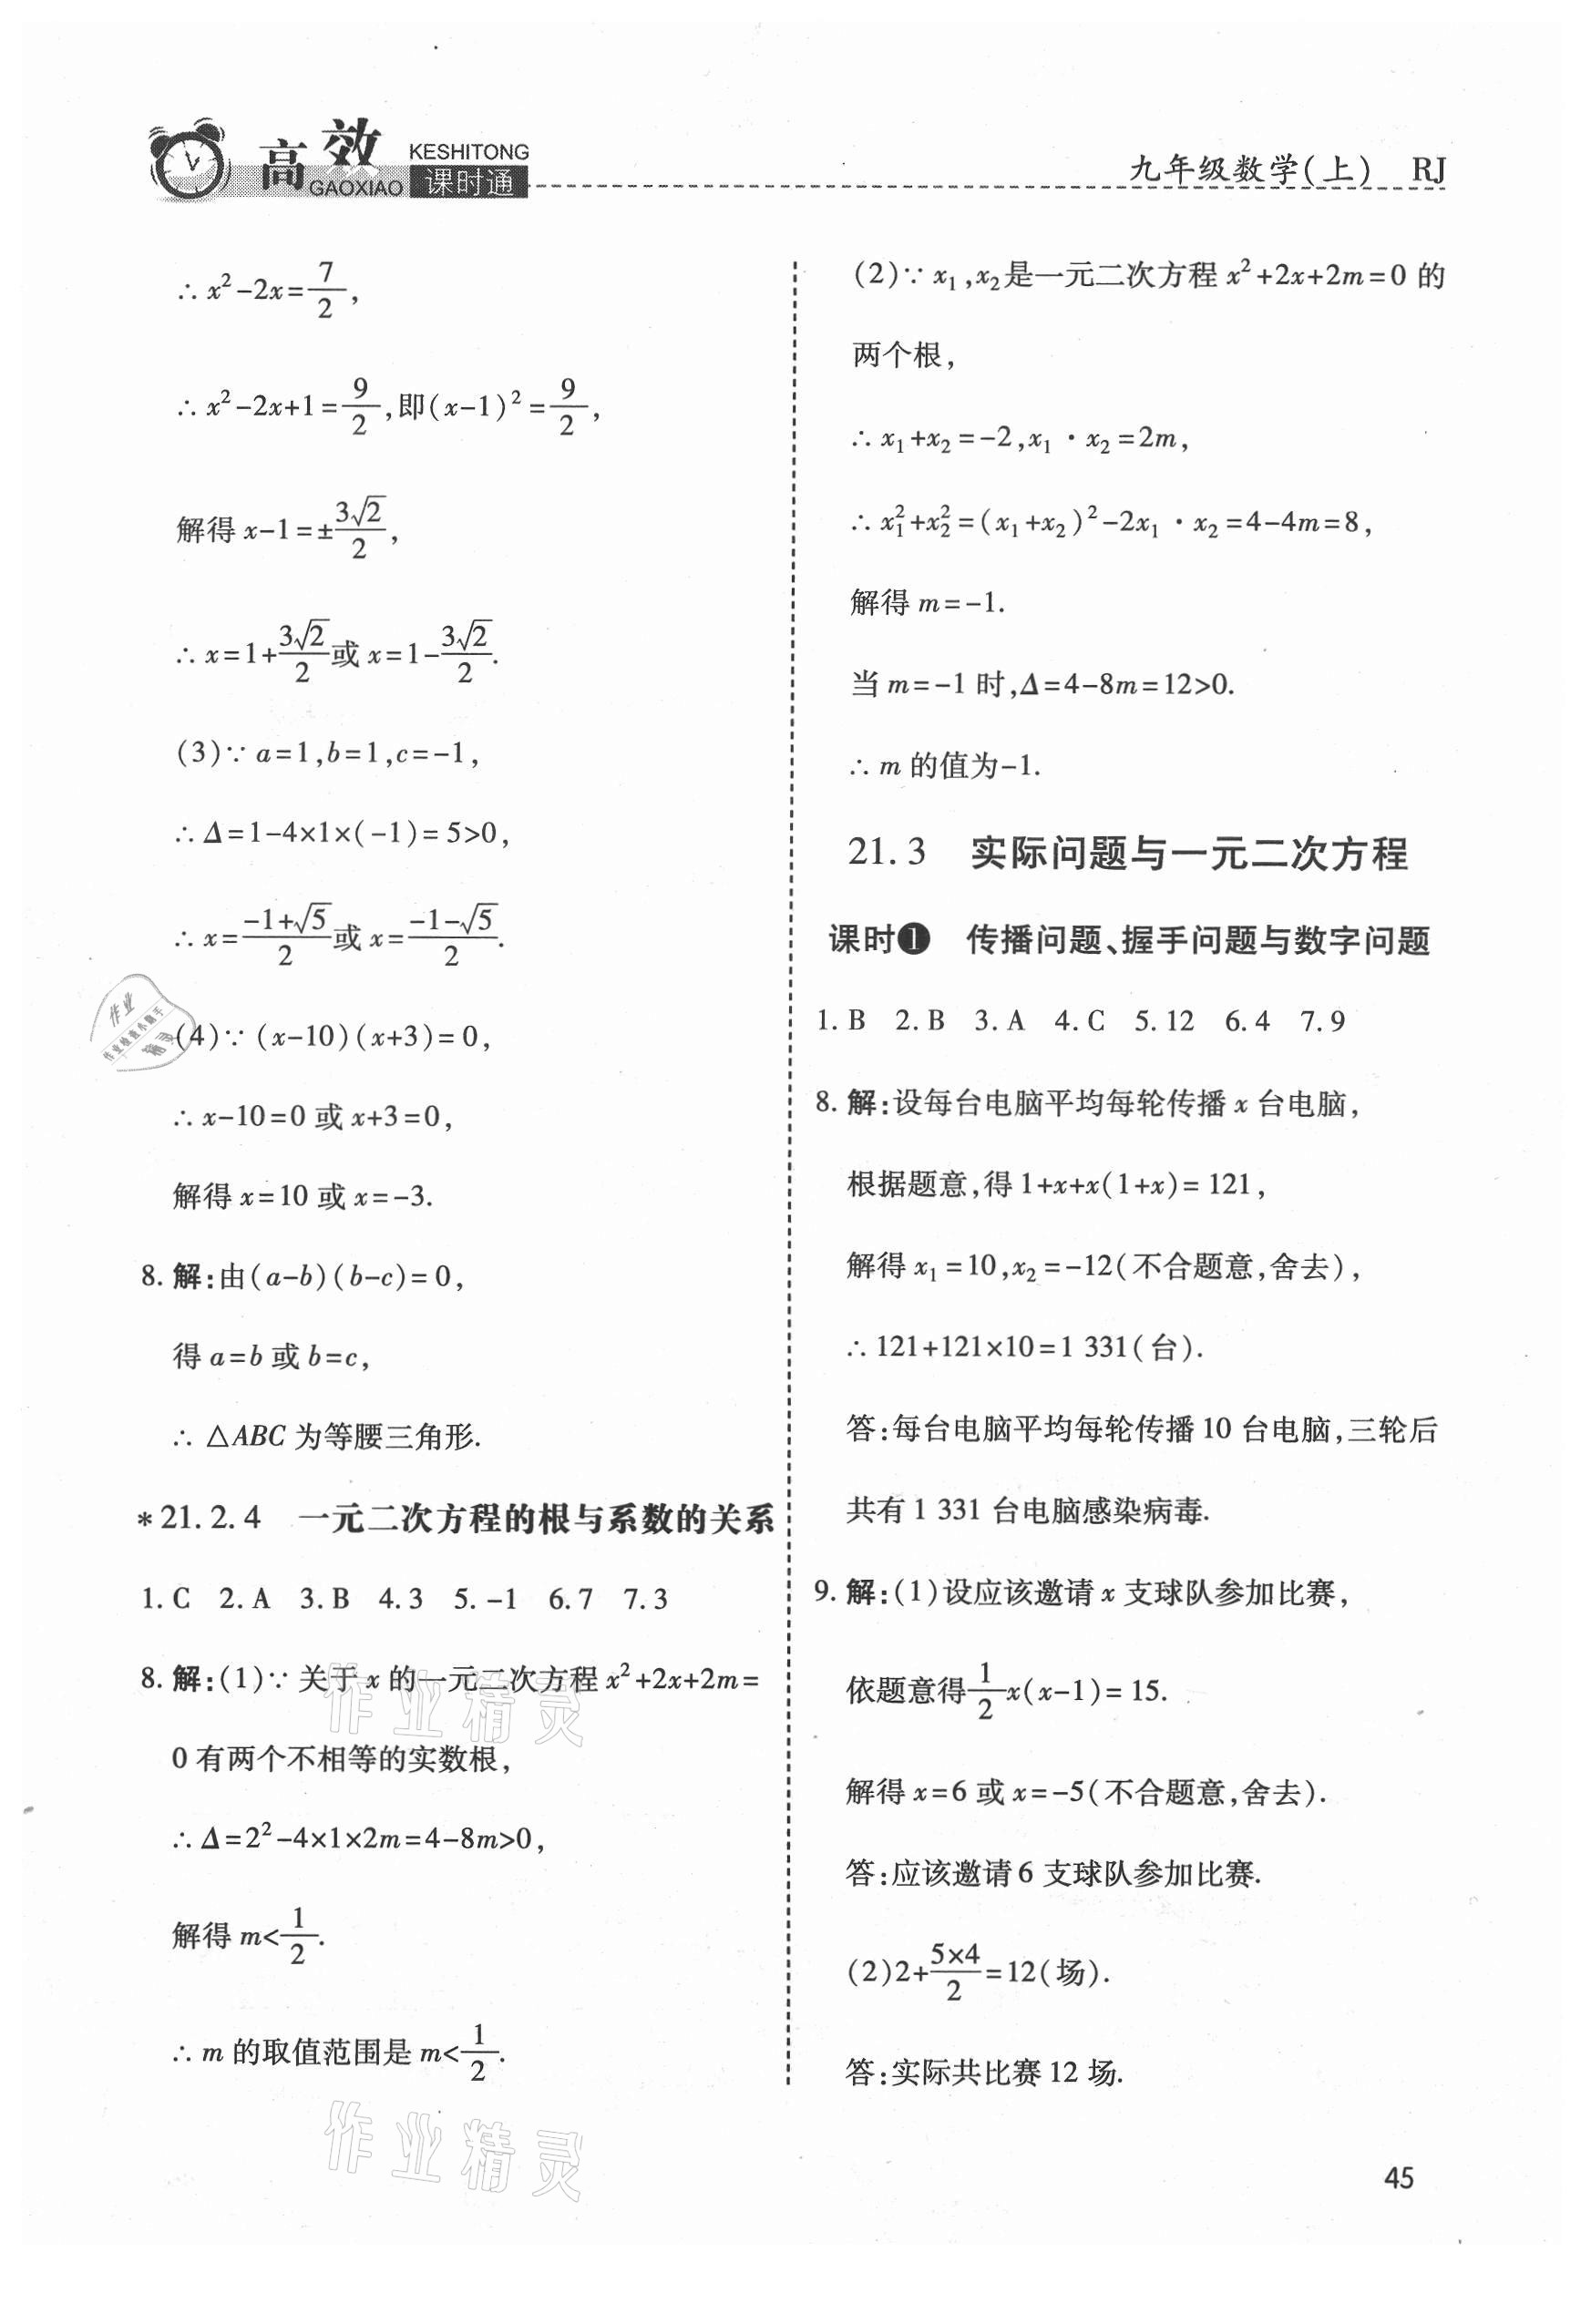 高效 KESHITONG
GAOXIAO 课时通
九年级数学(上) RJ
∴ x²-2x=7/2,
∴ x²-2x+1=9/2,即(x-1)²=9/2,
解得 x-1=±3√2/2,
∴ x=1+3√2/2或 x=1-3√2/2.
(3)∵ a=1,b=1,c=-1,
∴ Δ=1-4×1×(-1)=5>0,
∴ x=(-1+√5)/2或 x=(-1-√5)/2.
(4)∵ (x-10)(x+3)=0,
∴ x-10=0 或 x+3=0,
解得 x=10 或 x=-3.
8. 解:由(a-b)(b-c)=0,
得 a=b 或 b=c,
∴ △ABC 为等腰三角形.
*21.2.4 一元二次方程的根与系数的关系
1.C 2.A 3.B 4.3 5.-1 6.7 7.3
8. 解:(1)∵ 关于 x 的一元二次方程 x²+2x+2m=
0 有两个不相等的实数根,
∴ Δ=2²-4×1×2m=4-8m>0,
解得 m<1/2.
∴ m 的取值范围是 m<1/2.
(2)∵ x₁,x₂是一元二次方程 x²+2x+2m=0 的
两个根,
∴ x₁+x₂=-2,x₁·x₂=2m,
∴ x₁²+x₂²=(x₁+x₂)²-2x₁·x₂=4-4m=8,
解得 m=-1.
当 m=-1 时,Δ=4-8m=12>0.
∴ m 的值为-1.
21.3 实际问题与一元二次方程
课时❶ 传播问题、握手问题与数字问题
1.B 2.B 3.A 4.C 5.12 6.4 7.9
8. 解:设每台电脑平均每轮传播 x 台电脑,
根据题意,得 1+x+x(1+x)=121,
解得 x₁=10,x₂=-12(不合题意,舍去),
∴ 121+121×10=1 331(台).
答:每台电脑平均每轮传播 10 台电脑,三轮后
共有 1 331 台电脑感染病毒.
9. 解:(1)设应该邀请 x 支球队参加比赛,
依题意得1/2x(x-1)=15.
解得 x=6 或 x=-5(不合题意,舍去).
答:应该邀请 6 支球队参加比赛.
(2)2+5×4/2=12(场).
答:实际共比赛 12 场.
作业精灵
作业精灵
45